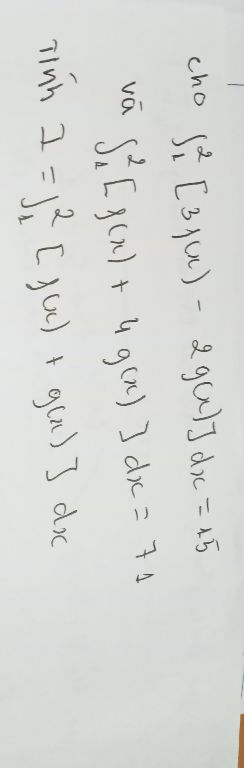 cho ∫₁² [3f(x) - 2g(x)] dx = 15
và ∫₁² [f(x) + 4g(x)] dx = 71
Tính I = ∫₁² [f(x) + g(x)] dx